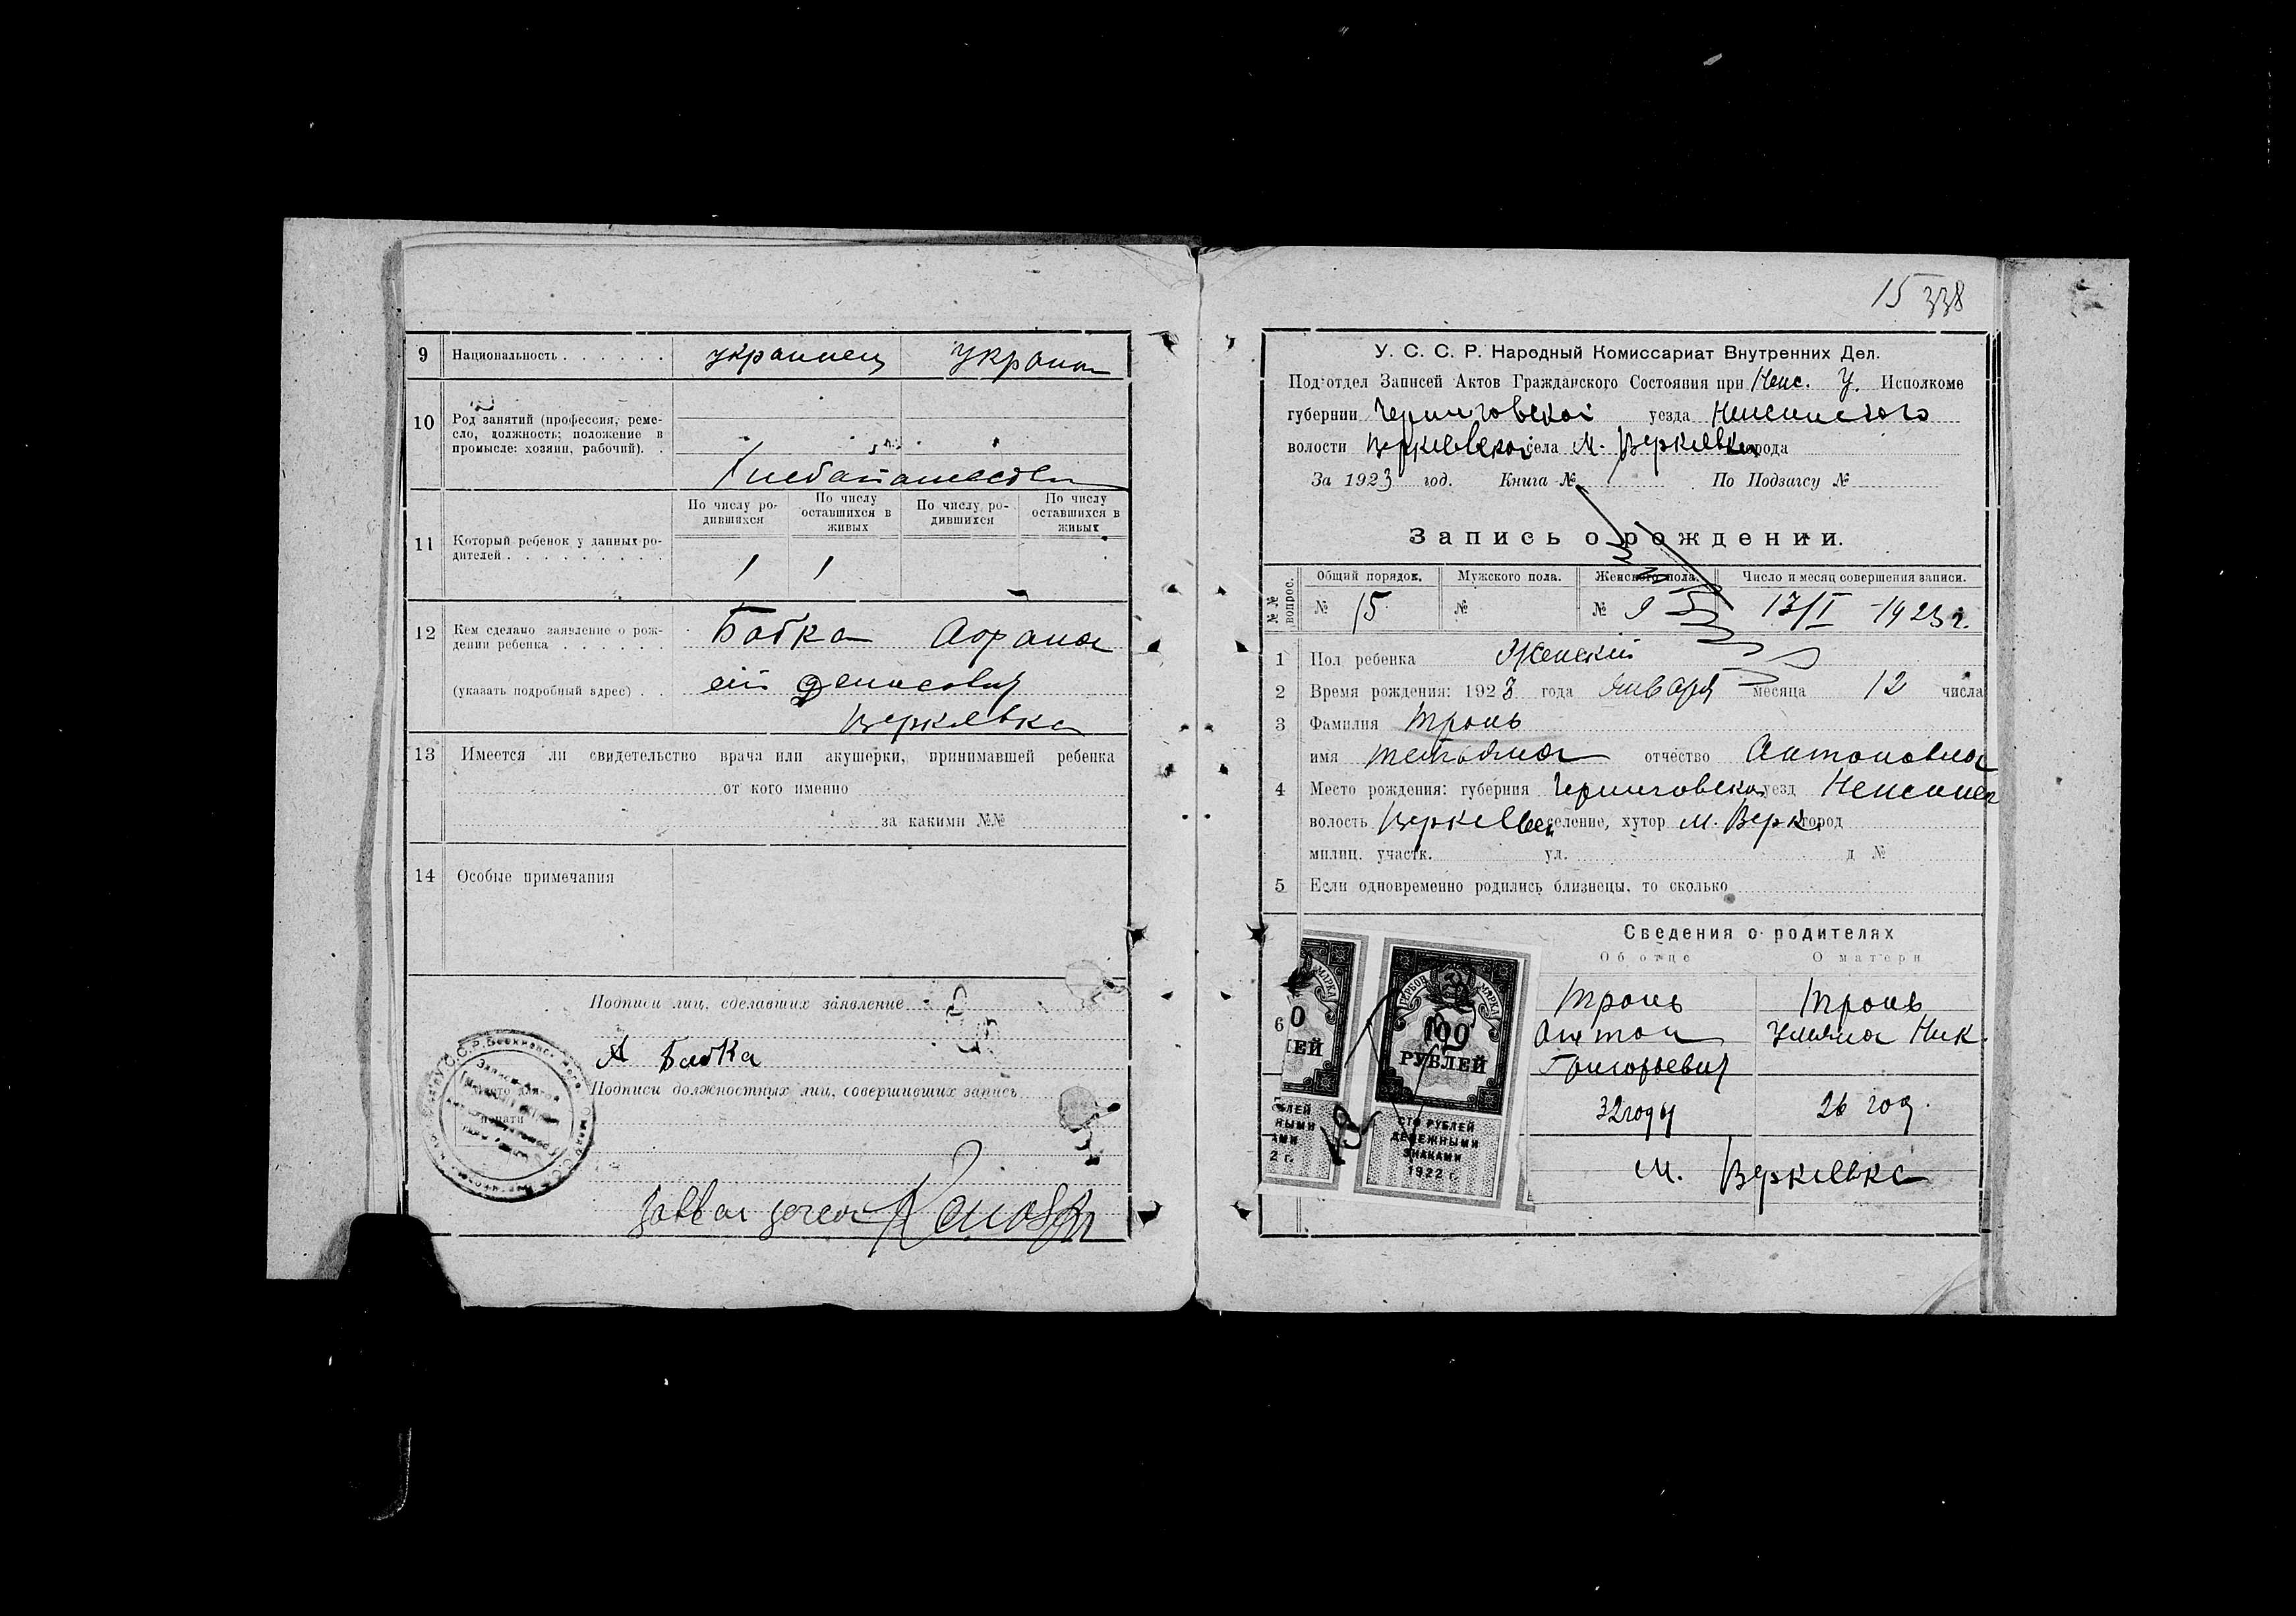 9 Национальность . . . . . . украинец Украин
10 Род занятий (профессия, реме-
сло, должность; положение в
промысле: хозяин, рабочий). .
По числу ро-
дившихся
По числу
оставшихся в
живых
По числу ро-
дившихся
По числу
оставшихся в
живых
11 Который ребенок у данных ро-
дителей . . . . . . . . . 1 1
12 Кем сделано заявление о рож-
дении ребенка . . . . . . Бабка
(указать подробный адрес) . . Денисович
Веркиевка
13 Имеется ли свидетельство врача или акушерки, принимавшей ребенка
от кого именно
за какими №№
14 Особые примечания
Подписи лиц, сделавших заявление
А Бабка
Подписи должностных лиц, совершивших запись
15 338
У. С. С. Р. Народный Комиссариат Внутренних Дел.
Под'отдел Записей Актов Гражданского Состояния при Неж. У. Исполкоме
губернии Черниговской уезда Неженского
волости Веркиевской села М. Веркиевка города
За 1923 год. Книга № По Подзагсу №
Запись о рождении.
№№ вопрос.
Общий порядок. Мужского пола. Женского пола. Число и месяц совершения записи.
№ 15 № № 9 13/I -1923 г.
1 Пол ребенка Женский
2 Время рождения: 1923 года января месяца 12 числа
3 Фамилия Тронь
имя Татьяна отчество Антоновна
4 Место рождения: губерния Черниговская уезд Неженск
волость Веркиев селение, хутор М. Верк. город
милиц. участк. ул. д №
5 Если одновременно родились близнецы, то сколько
Сведения о родителях
Об отце О матери
6 Тронь Тронь
Антон Ульяна Ник.
Григорьевич
32 годы 26 год.
М. Веркиевка
ГЕРБОВ. МАРКА
100
РУБЛЕЙ
СТО РУБЛЕЙ
ДЕНЕЖНЫМИ
ЗНАКАМИ
1922 г.